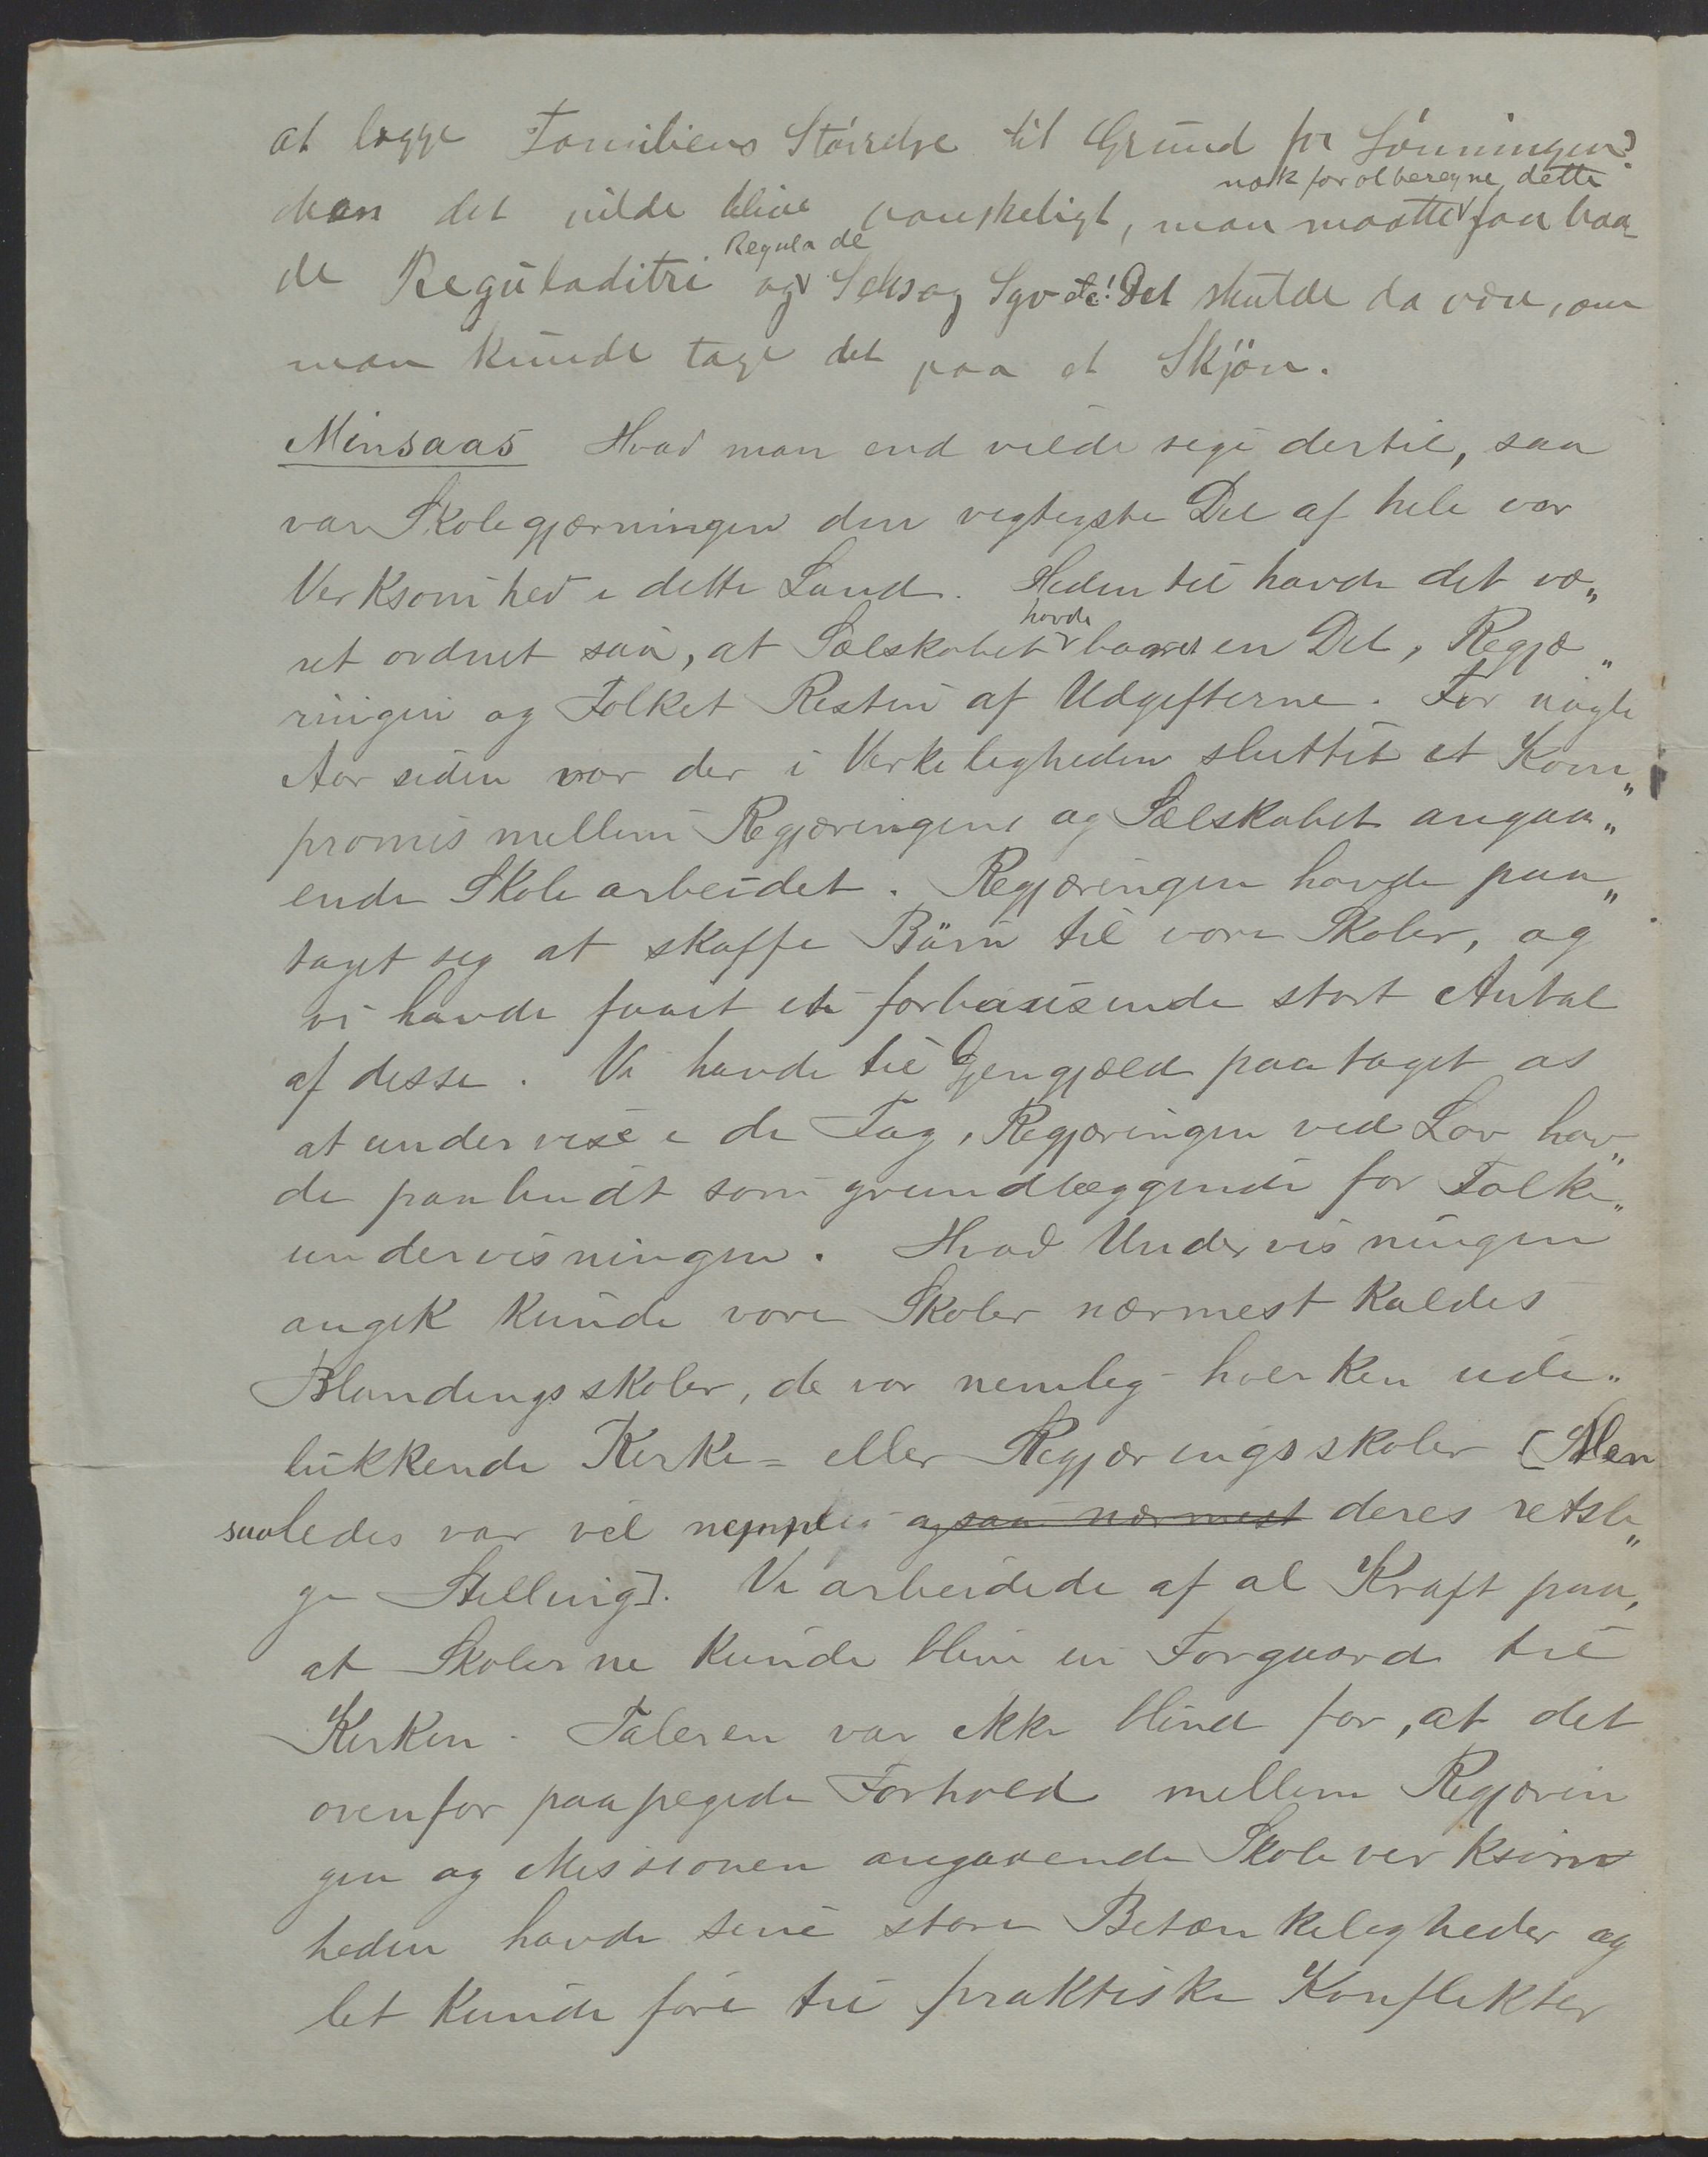 at lægge Familiens Størrelse til Grund for Lønningen?
nok for at beregne dette
Men det vilde blive vanskeligt, man maatte faa baa-
Regula de
de Reguladitri og Seks og Syv etc! Det skulde da være, om
man kunde tage det paa et Skjøn.
Minsaas Hvad man end vilde sige dertil, saa
var Skolegjærningen den vigtigste Del af hele vor
Verksomhed i dette Land. Heden til havde det væ„
havde
ret ordnet saa, at Sælskabet baaret en Del, Regjæ„
ringen og Folket Resten af Udgifterne. For nogle
Aar siden var der i Verkeligheden sluttet et Kom„
promis mellem Regjæringen og Sælskabet angaa„
ende Skolearbeidet. Regjæringen havde paa„
taget seg at skaffe Børn til vore Skoler, og
vi havde faaet et forbausende stort Antal
af desse. Vi havde til Gjengjæld paataget os
at undervise i de Fag, Regjæringen ved Lov hav„
de paabudt som grundlæggende for Folke„
undervisningen. Hvad Undervisningen
angik kunde vore Skoler nærmest kaldes
Blandingsskoler, de var nemleg hverken ude„
lukkende Kerke= eller Regjæringsskoler [Men
saaledes var vel neppe ogsaa nærmest deres retsle„
ge Stelling]. Vi arbeidede af al Kraft paa,
at Skolerne kunde blive en Forgaard til
Kerken. Taleren var ikke blind for, at det
ovenfor paapegede Forhold mellem Regjærin
gen og Missionen angaaende Skoleverksom
heden havde sine store Betænkeligheder og
let kunde føre til praktiske Konflikter